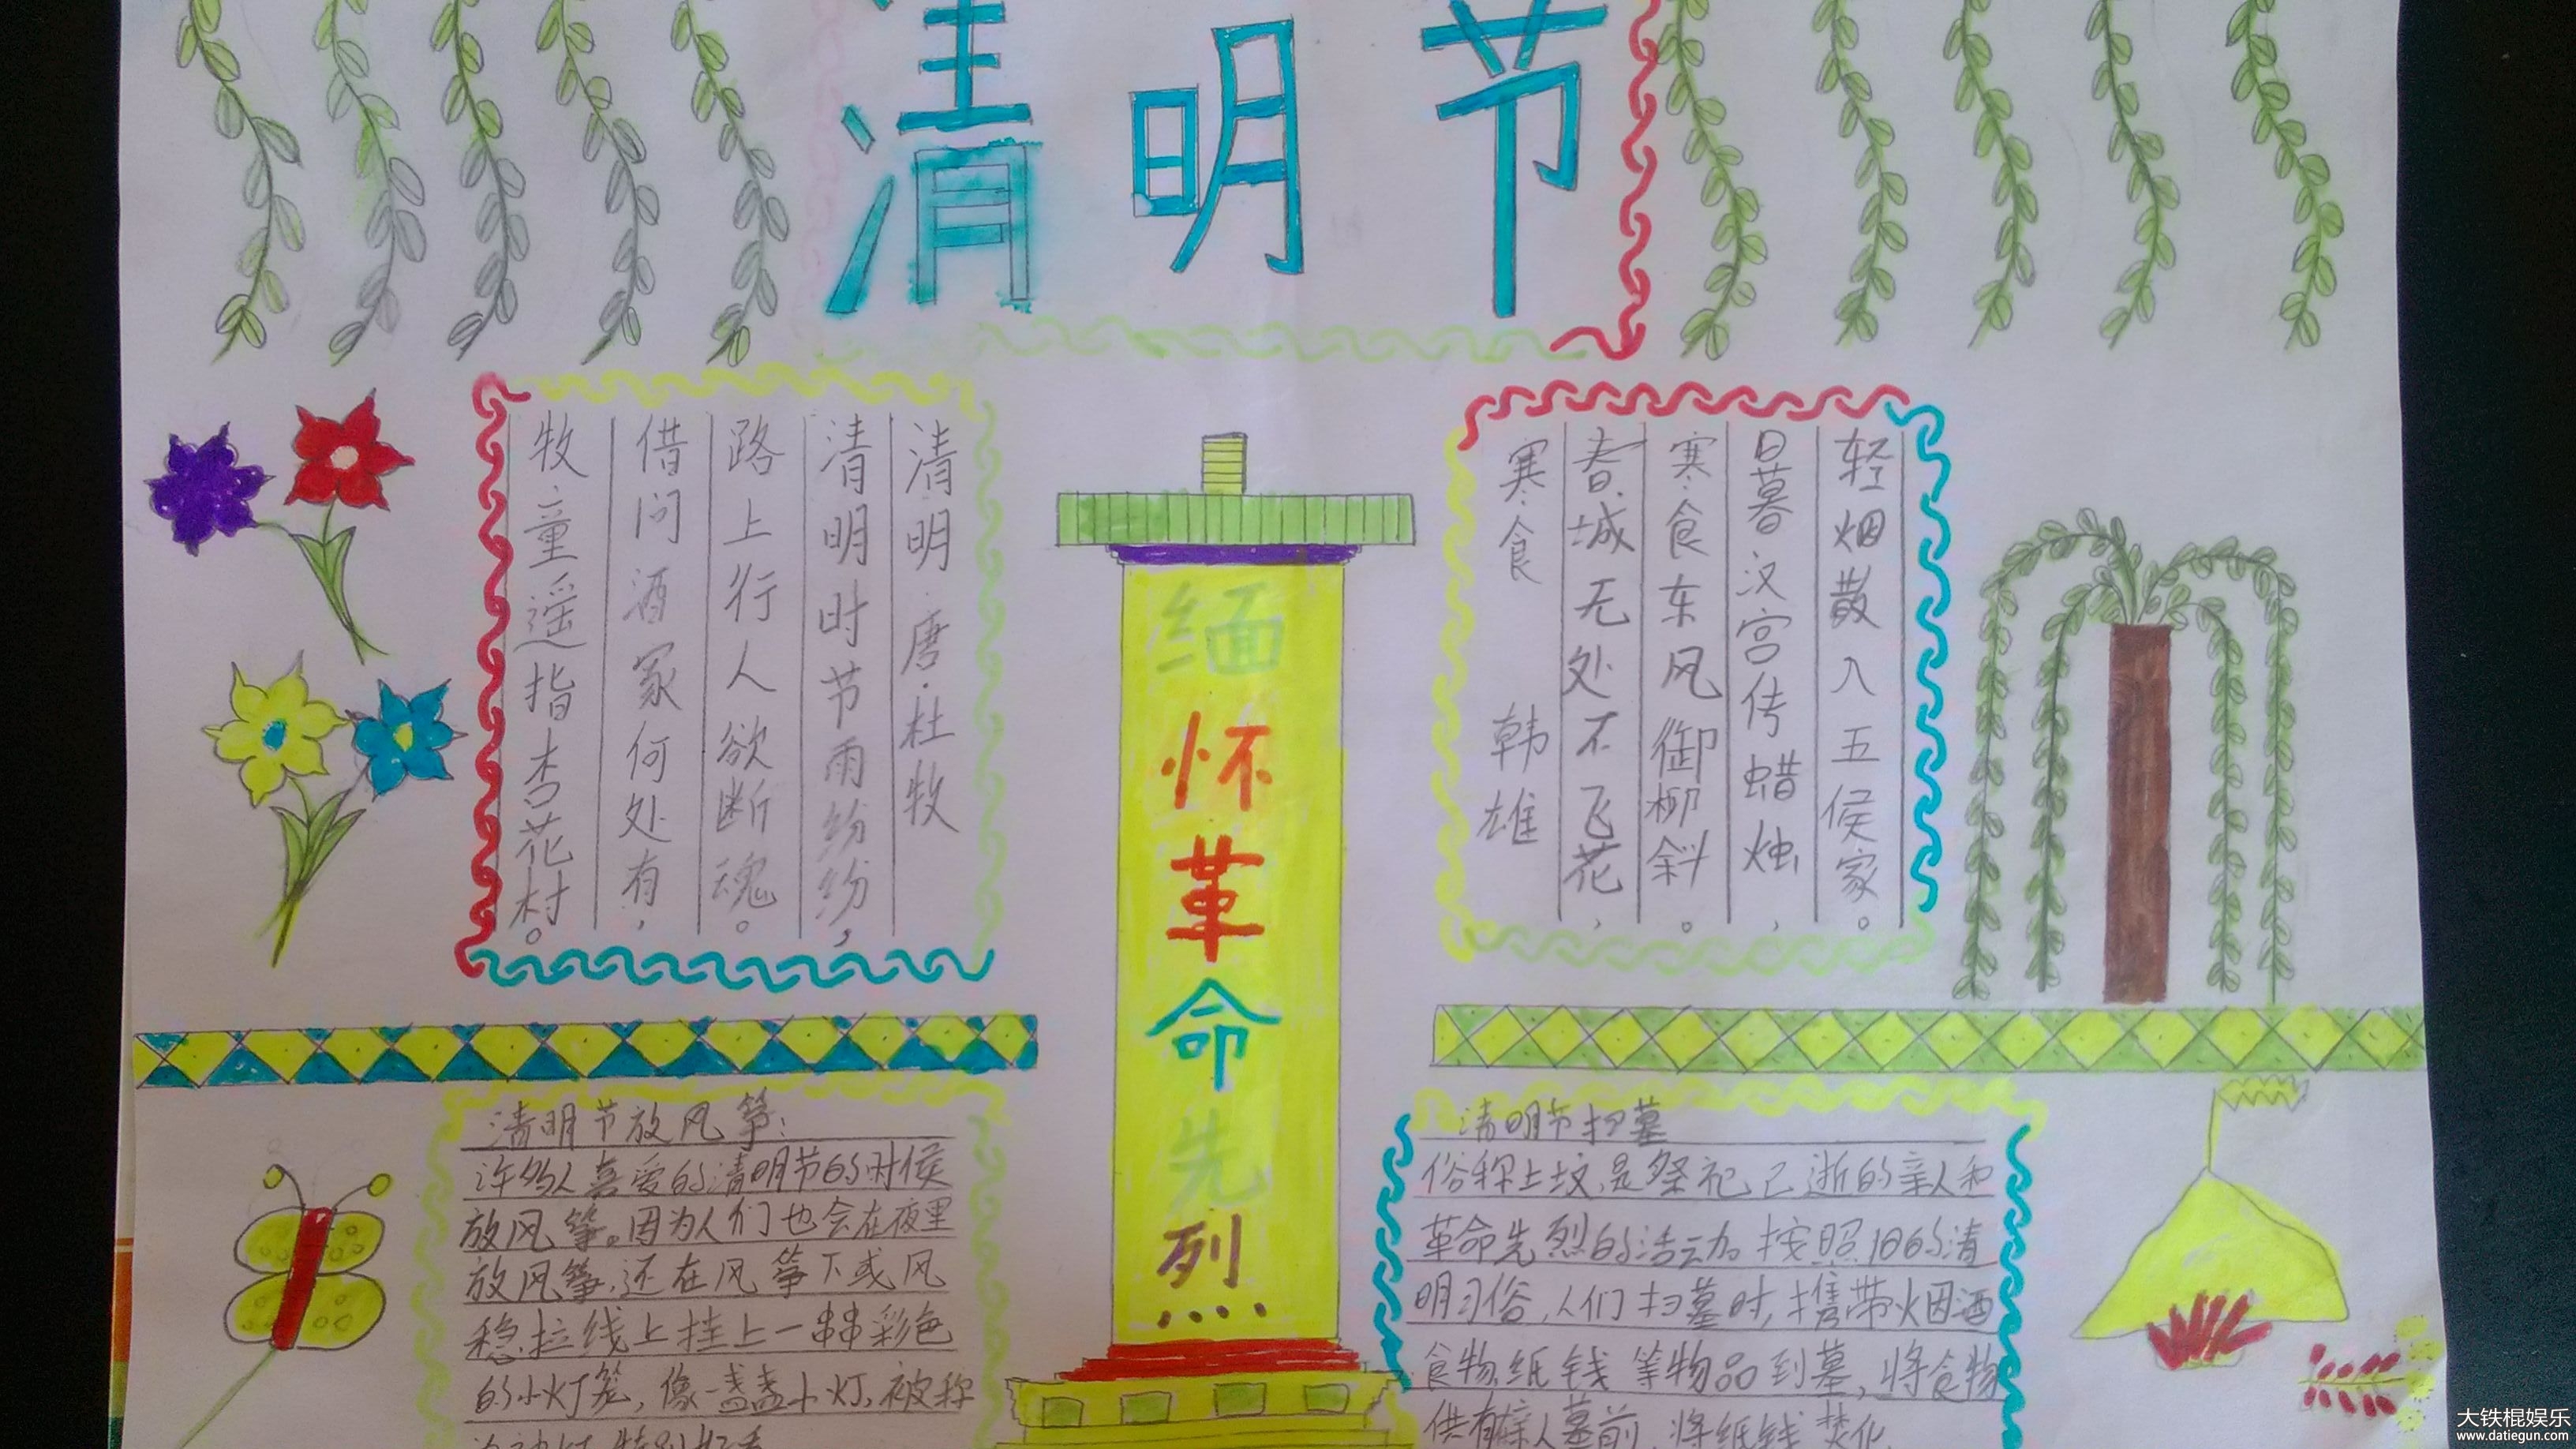 清明节
清明 唐·杜牧
清明时节雨纷纷，
路上行人欲断魂。
借问酒家何处有，
牧童遥指杏花村。
缅怀革命先烈
寒食 韩雄
春城无处不飞花，
寒食东风御柳斜。
日暮汉宫传蜡烛，
轻烟散入五侯家。
清明节放风筝：
许多人喜爱的清明节的时候
放风筝。因为人们也会在夜里
放风筝，还在风筝下或风
稳拉线上挂上一串串彩色
的小灯笼，像一盏盏小灯，被称
清明节扫墓
俗称上坟，是祭祀已逝的亲人和
革命先烈的活动。按照旧的清
明习俗，人们扫墓时，携带烟酒
食物，纸钱等物品到墓，将食物
供有亲人墓前，将纸钱焚化
大铁棍娱乐
www.datiegun.com